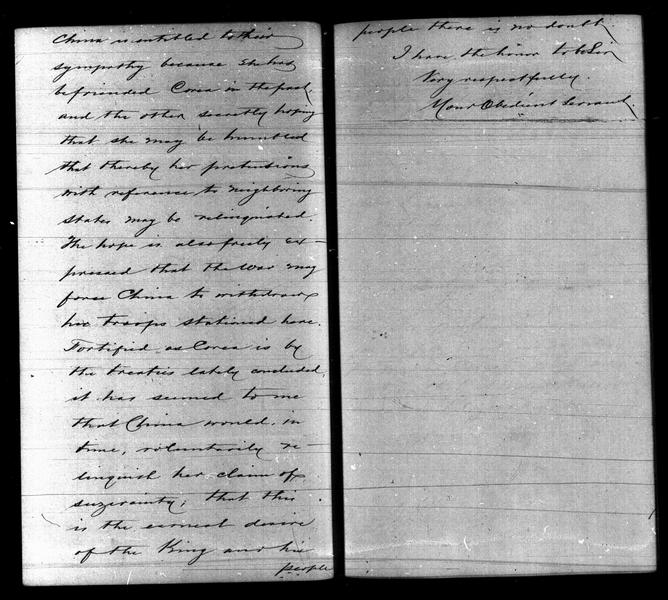 China is entitled to their
sympathy because she has
befriended Corea in the past,
and the other secretly hoping
that she may be humbled
that thereby her pretensions
with reference to neighboring
states may be relinquished.
The hope is also freely ex-
pressed that the war may
force China to withdraw
his troops stationed here.
Fortified as Corea is by
the treaties lately concluded,
it has seemed to me
that China would, in
time, voluntarily re-
linquish her claim of
suzerainty; that this
is the earnest desire
of the King and his
people
people there is no doubt
I have the honor to be Sir
Very respectfully.
Your Obedient Servant.